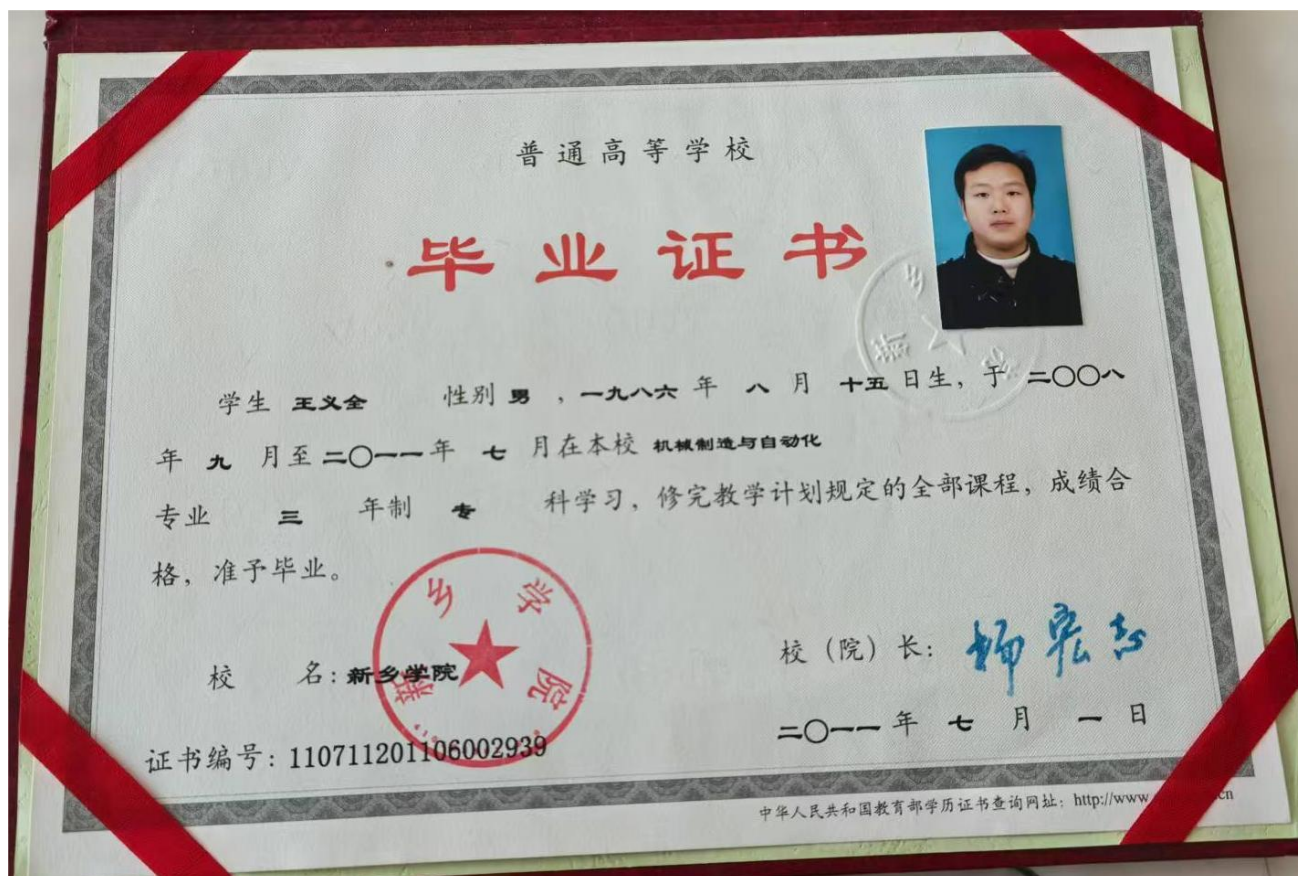 普通高等学校
毕业证书
学生 王义全 性别 男 ，一九八六 年 八 月 十五 日生，于 二〇〇八
年 九 月至 二〇一一 年 七 月在本校 机械制造与自动化
专业 三 年制 专 科学习，修完教学计划规定的全部课程，成绩合
格，准予毕业。
新乡学院
校 名：新乡学院
校（院）长：杨宏志
二〇一一 年 七 月 一 日
证书编号：110711201106002939
中华人民共和国教育部学历证书查询网址：http://www
cn